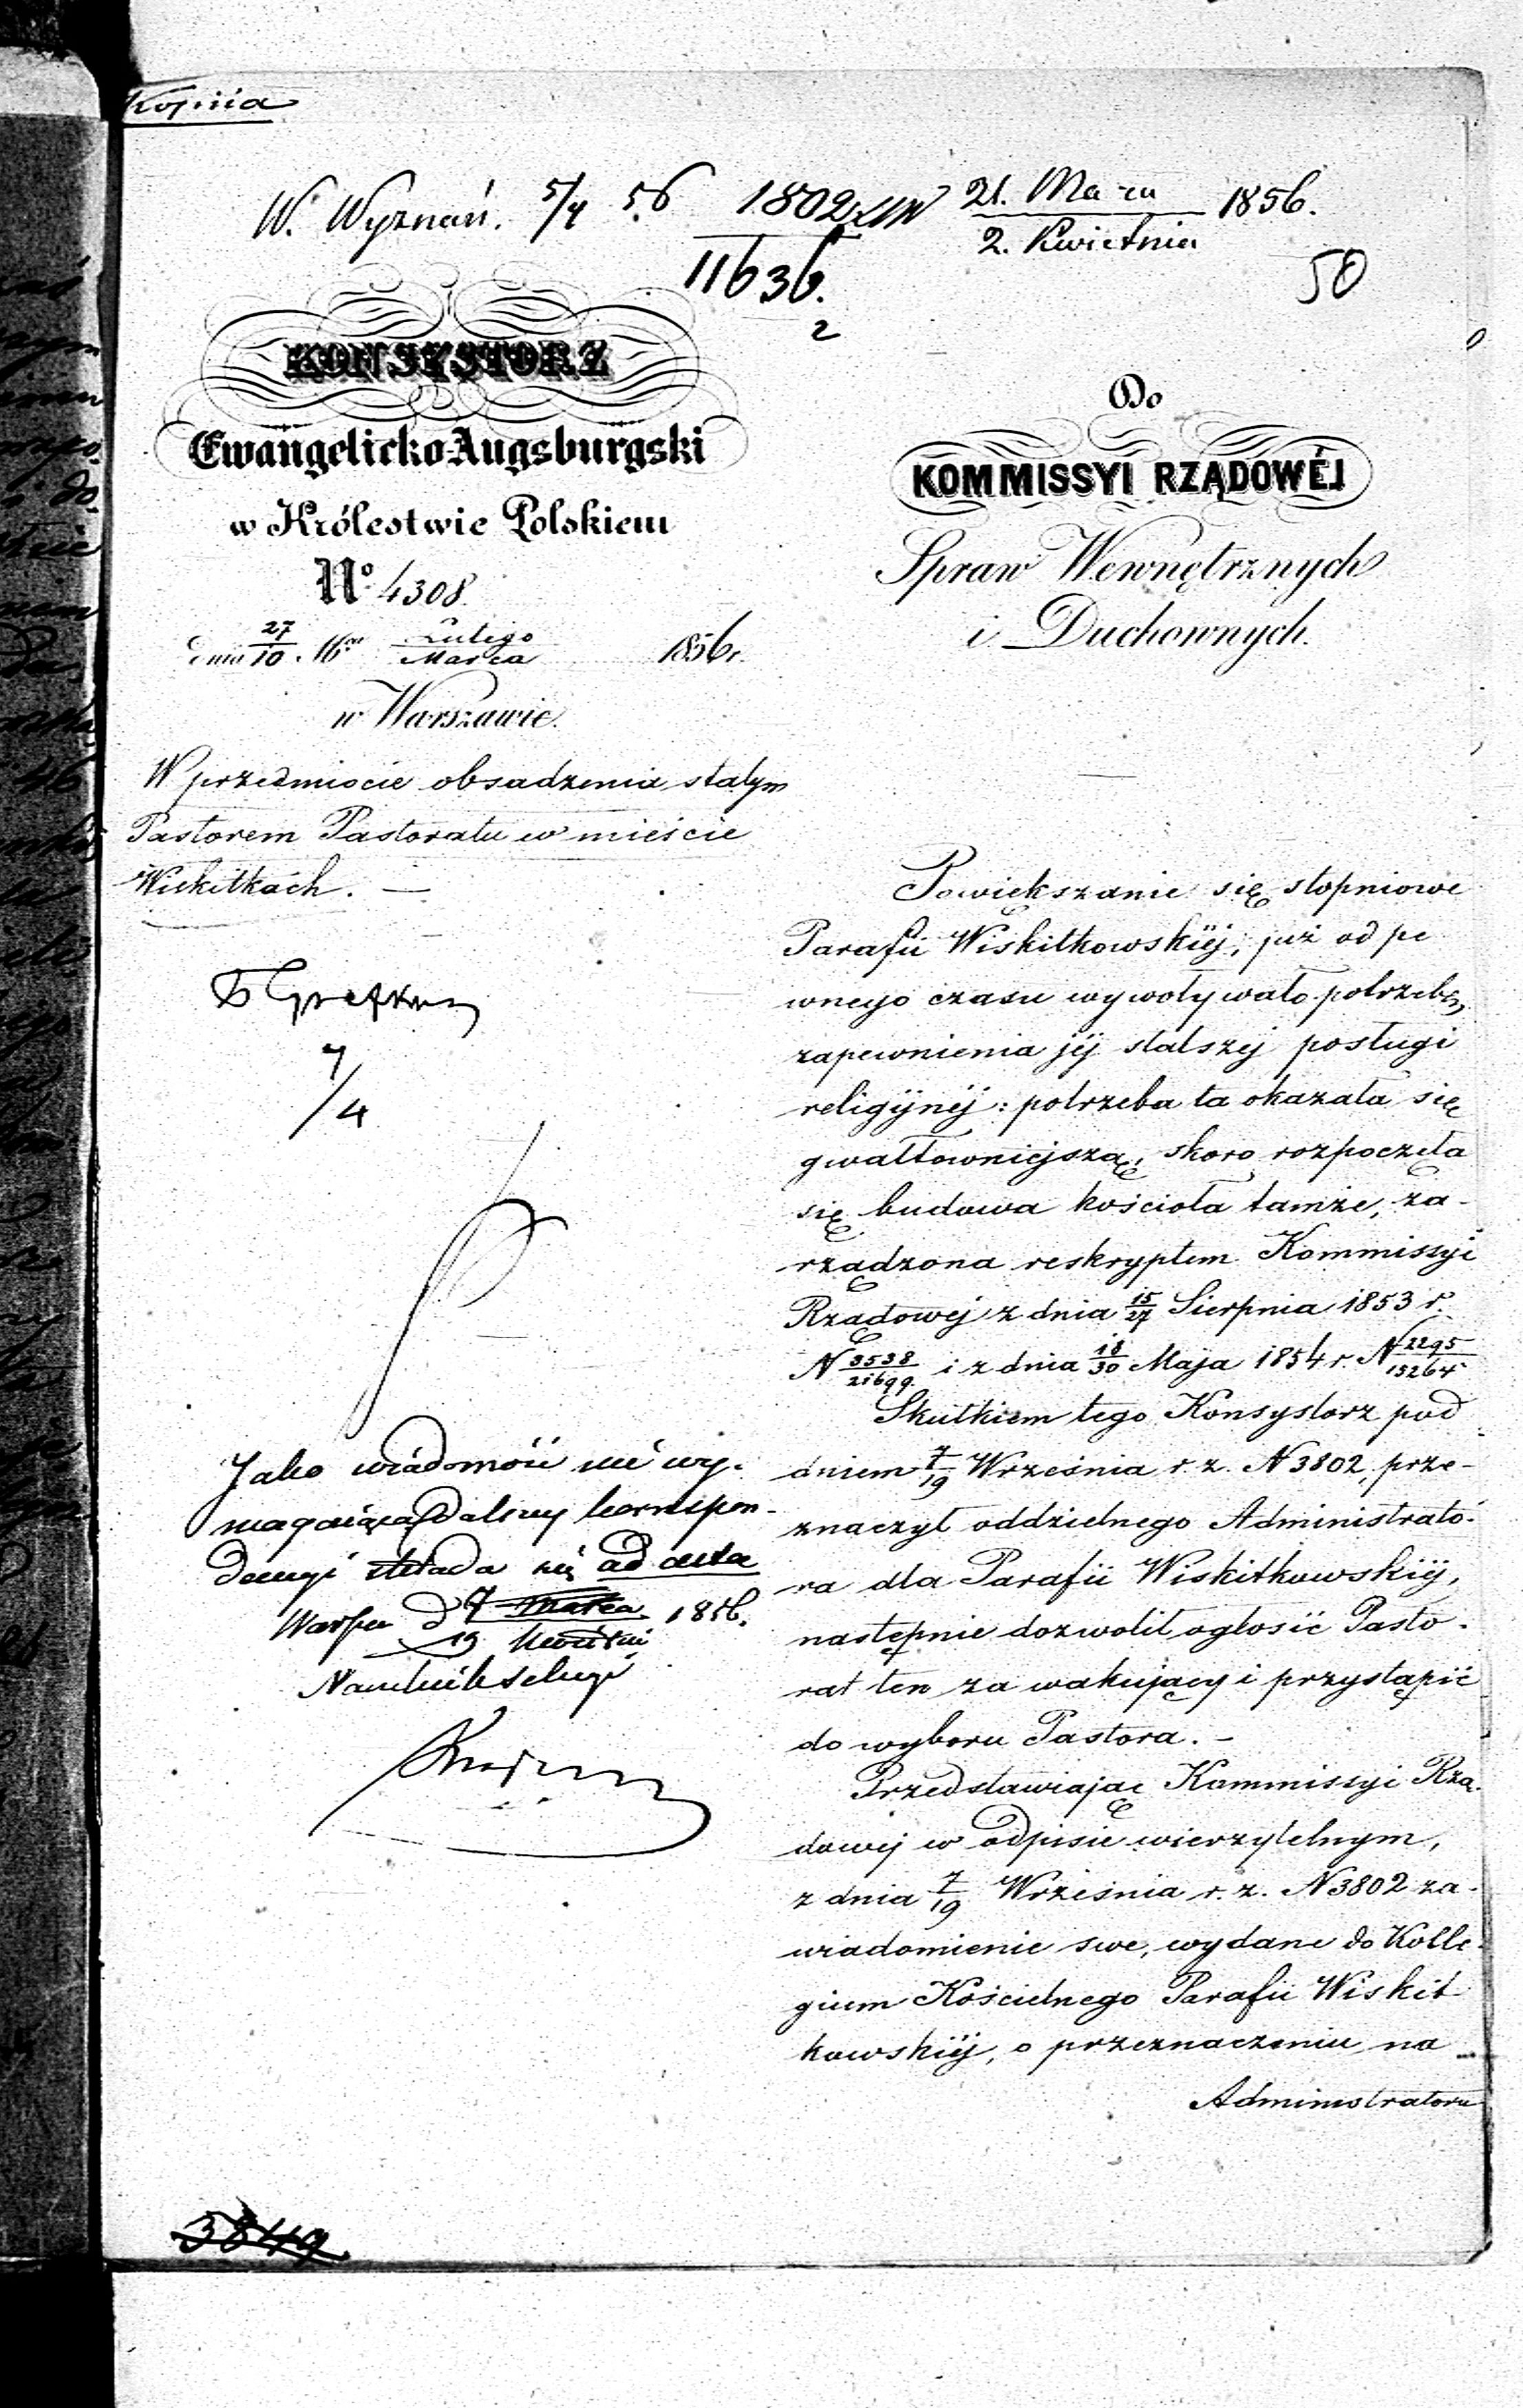 Kopiia
W. Wyznań. 5/4 56 1802 21. Marca 1856.
11636. 2. Kwietnia
2
50
KONSYSTORZ
Ewangelicko-Augsburgski
w Królestwie Polskiem
No 4308.
dnia 27/10 Mca Lutego/Marca 1856 r.
w Warszawie.
W przedmiocie obsadzenia stałym
Pastorem Pastoratu w mieście
Wiskitkach. —
7/4
Jako wiadomość nie wy-
magaiąca dalszey korrespon-
dencyi składa się ad acta
d 7 Marca 1856.
19 Kwietni
Naczelnik Sekcyi
3849
Do
KOMMISSYI RZĄDOWÉJ
Spraw Wewnętrznych
i Duchownych.
Powiększanie się stopniowe
Parafii Wiskitkowskiéj, już od pe
wnego czasu wywoływało potrzebę
zapewnienia jéj stalszej posługi
religijnéj: potrzeba ta okazała się
gwałtowniejszą, skoro rozpoczęta
się budowa kościoła tamże, za-
rządzona reskryptem Kommissyi
Rządowej z dnia 15/27 Sierpnia 1853 r.
N 3538/21699. i z dnia 18/30 Maja 1854 r. N 2295/15264
Skutkiem tego Konsystorz pod
dniem 7/19 Września r. z. N 3802, prze-
znaczył oddzielnego Administrato-
ra dla Parafii Wiskitkowskiéj,
następnie dozwolił ogłosić Pasto-
rat ten za wakujący i przystąpić
do wyboru Pastora. —
Przedstawiając Kommissyi Rzą-
dowej w odpisie wierzytelnym,
z dnia 7/19 Września r. z. N 3802 za-
wiadomienie swe, wydane do Kolle-
gium Kościelnego Parafii Wiskit-
kowskiéj, o przeznaczeniu na
Administratora